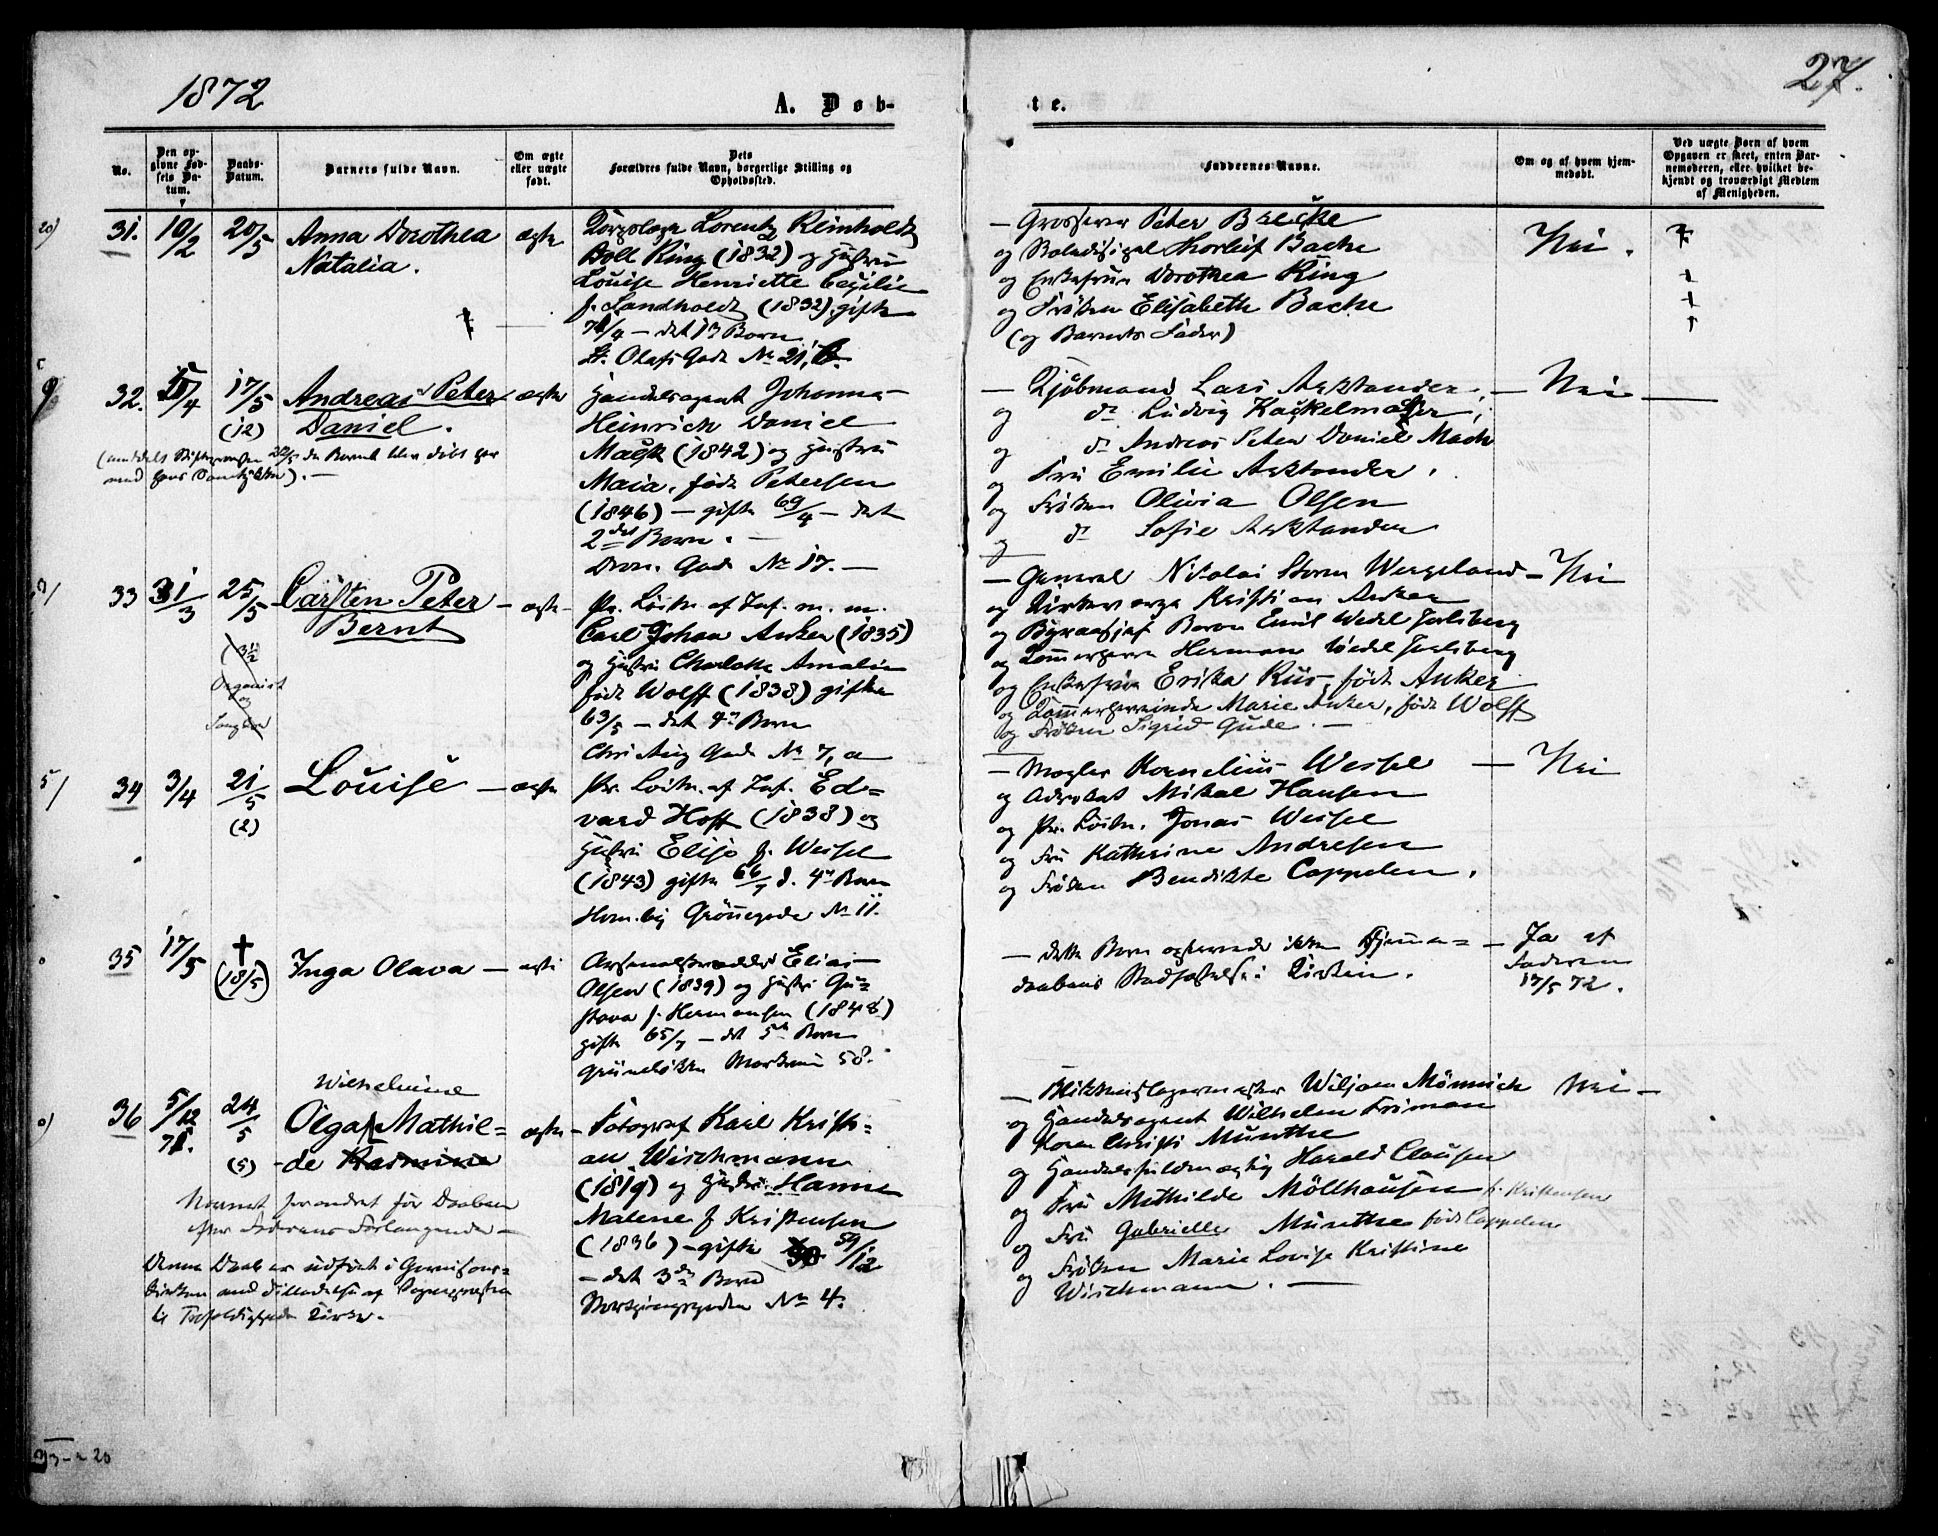 1872
27.
A. Døb-
te.
No.
Den op-
givne Fød-
sels Da-
tum.
Daabs-
Datum.
Barnets fulde Navn.
Om ægte
eller uægte
født.
Dets
Forældres fulde Navn, borgerlige Stilling og
Opholdssted.
Faddernes Navne.
Om og af hvem hjem-
medøbt.
Ved uægte Børn af hvem
Opgaven er skeet, enten Bar-
nemoderen, eller hvilket be-
kjendt og troværdigt Medlem
af Menigheden.
31. 10/2 20/5 Anna Dorothea ægte
Natalia.
Lorentz Reinholdt
Boll Ring (1832) og Hustru
Louise Henriette Cecilie
f. Landholdt (1832) gifte
71/4 – det 1ste Barn
St. Olafs Gade No 21, b.
– Grosserer Peter Bache
og Thorleif Bache
og Enkefrue Dorothea Ring
og Frøken Elisabeth Bache
(og Barnets Fader)
Nei.
32. 17/5 Andreas Peter ægte
(12) Daniel.
Handelsagent Johannes
Heinrich Daniel
(1842) og Hustru
Maia, født Petersen
(1846) – gifte 69/4 – det
2det Barn. –
Dron. Gade No 17. –
– Kjøbmand Lars
og do Ludvig
og do Andreas Peter Daniel
og Fru Emilie
og Frøken Olivia Olsen
og do Sofie
– Nei
33 31/3 25/5 Carsten Peter – ægte
Bernt
(3 1/2
Organist
og
Pr. Løitn. af Inf. m. m.
Carl Johan Anker (1835)
og Hustru Charlotte Amalie
født Wolff (1838) gifte
63/5 – det 4de Barn
Chr. Aug. Gade No 7, a
– General Nikolai Storm Wergeland
og Kristian Anker
og Baron Emil Wedel Jarlsberg
og Kammerherre Herman Wedel Jarlsberg
og Enkefrue Erika født Anker
og Kammerherreinde Marie Anker, født Wolff
og Frøken Sigrid Gude. –
– Nei
34 3/4 21/5 Louise – ægte
(2)
Pr. Løitn. af Inf. Ed-
vard Hoff (1838) og
Hustru Elise f. Wessel
(1843) gifte 66/7 d. 4de Barn
Hom.by Grønnegade No 11.
– Mægler Kornelius Wessel
og Advokat Mikal Hansen
og Pr. Løitn. Jonas Wessel
og Fru Kathrine Andresen
og Frøken Bendikte Cappelen.
– Nei
35 17/5 † Inga Olava – ægte
(18/5)
Elias
Olsen (1839) og Hustru Gu-
stava f. Hermansen (1848)
gifte 65/7 – det 5te Barn
Grünerløkken Markvei 58.
– dette Barn
Daabens Stadfæstelse i Kirken.
– Ja af
Faderen
17/5 72.
36 5/12 71. 24/5 Wilhelmine
(5) Olga Mathil-
de Rasmine
ægte
Navnet forandret før Daaben
efter Faderens Forlangende –
Denne Daab er udført i Garnisons-
kirken med Tilladelse af Sognepresten
til Trefoldigheds Kirke.
– Fotograf Karl Kristi-
an Wischmann
(1819) og Hustru Hanne
Malene f Kristensen
(1836) – gifte 59/12
– det 3die Barn
Storthingsgaden No 4.
– Blikkenslagermester Wiljam Mønnich
og Handelsagent Wilhelm Friman
Koren Christi Munthe
og Handelsfuldmægtig Harald Clausen
og Fru Mathilde Møllhausen f. Kristensen
og Fru Gabrielle Munthe født Cappelen
og Frøken Marie Lovise Kristine
Wischmann. –
Nei –